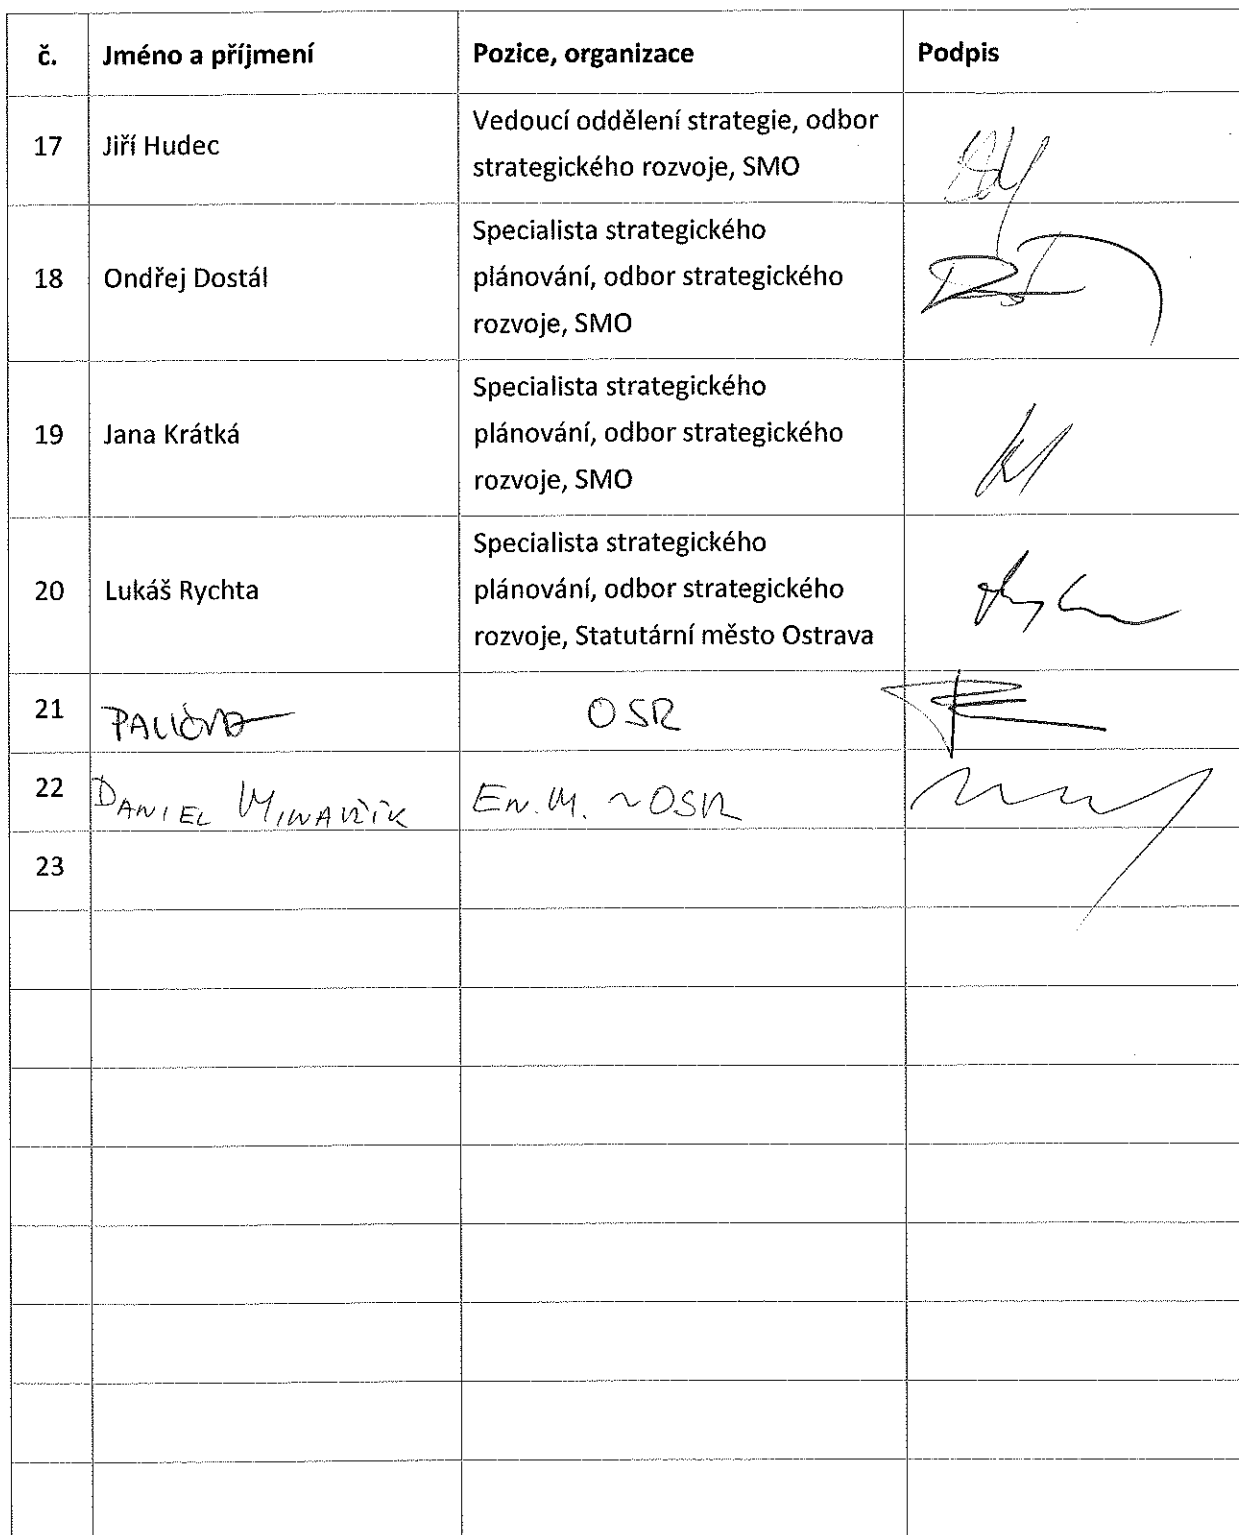 č. Jméno a příjmení Pozice, organizace Podpis
17 Jiří Hudec Vedoucí oddělení strategie, odbor
strategického rozvoje, SMO
18 Ondřej Dostál Specialista strategického
plánování, odbor strategického
rozvoje, SMO
19 Jana Krátká Specialista strategického
plánování, odbor strategického
rozvoje, SMO
20 Lukáš Rychta Specialista strategického
plánování, odbor strategického
rozvoje, Statutární město Ostrava
21 OSR
22 DANIEL En.M. ~ OSR
23